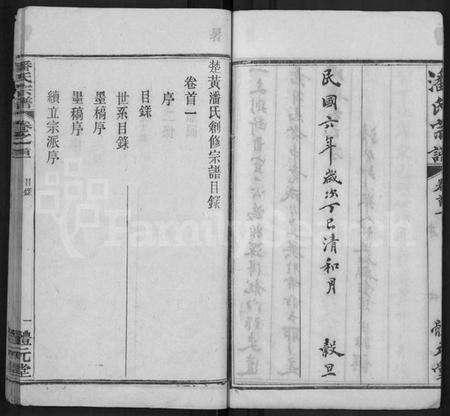 潘氏宗譜
卷首一
體元堂
民國六年歲次丁巳清和月 穀旦
楚黃潘氏創修宗譜目錄
卷首一
序
目錄
世系目錄
墨稿序
墨稿序
續立宗派序
潘氏宗譜
卷之首
目錄
一
體元堂
FamilySearch